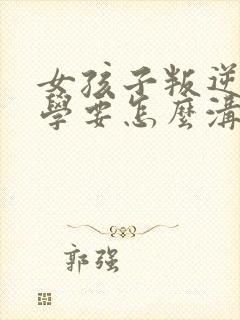 女孩子叛逆
學要怎麼溝
郭强